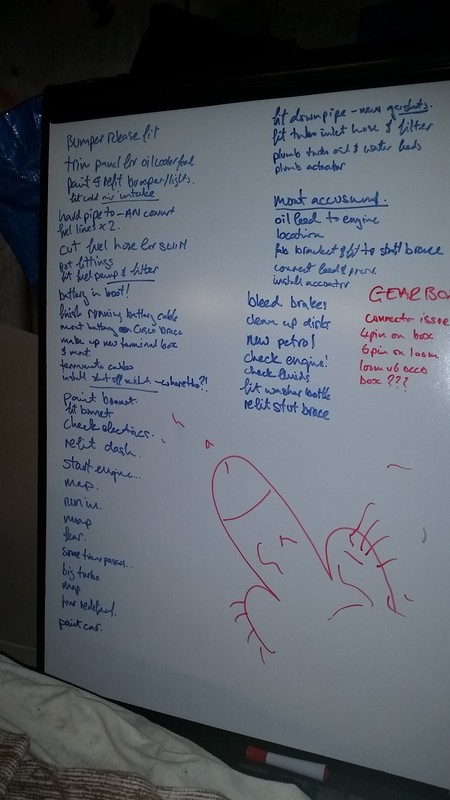 Bumper release fit
trim panel for oil cooler feed
paint & refit bumper/lights.
fit cold air intake
hard pipe to -AN convert
fuel lines x 2.
cut fuel hose for
Get fittings
fit fuel pump & filter
battery in boot!
finish running battery cable
mount battery on cusco brace
make up new terminal box
& mount
terminate cables
install shut off switch - where tho?!
paint bonnet
fit bonnet
check electrics.
refit dash.
start engine...
map.
run in.
map
fear.
some time passes...
big turbo.
map
fear redefined.
paint car.
fit downpipe - new gaskets.
fit turbo inlet hose & filter
plumb turbo oil & water feeds
plumb actuator
mount accusump.
oil feed to engine
location
fab bracket & fit to strut brace
connect feed &
install accusump
bleed brakes
clean up disks
new petrol
check engine!
check fluids
fit washer bottle
refit strut brace
GEARBO
connector issue
4pin on box
6pin on loom
loom v6
box ???